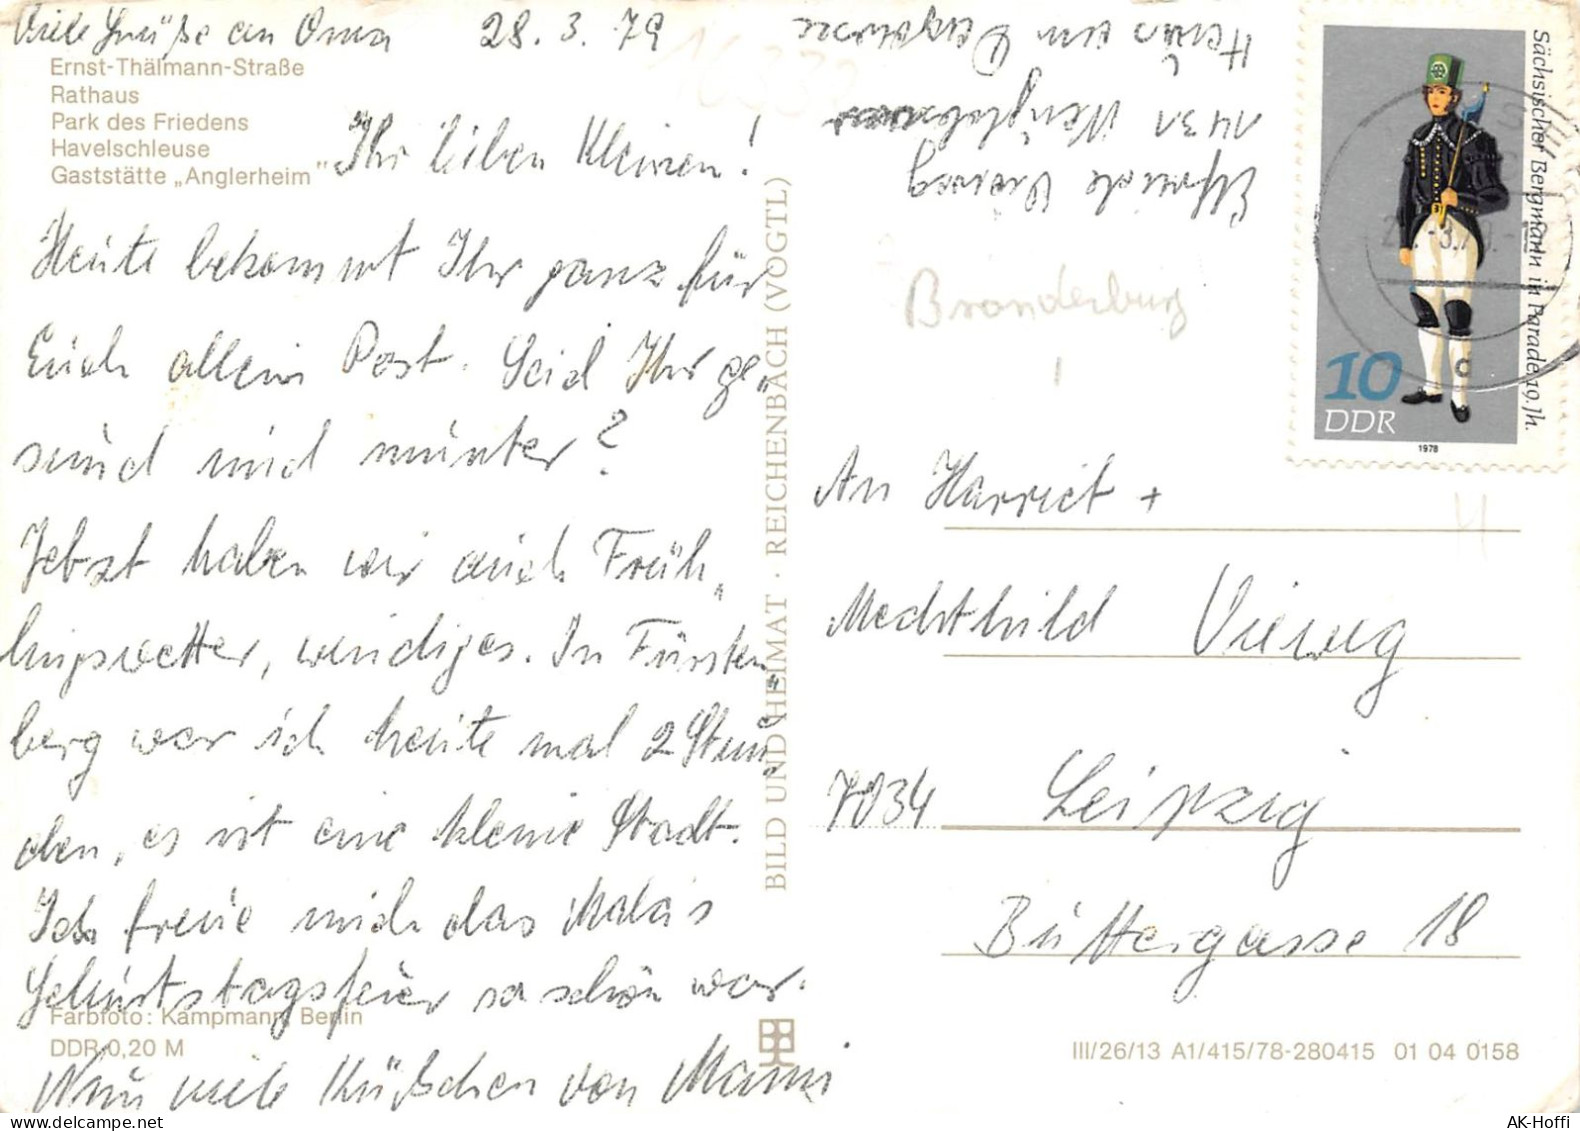 Viele Grüße an Oma 28. 3. 79
Ernst-Thälmann-Straße
Rathaus
Park des Friedens
Havelschleuse
Gaststätte „Anglerheim"
Ihr lieben Kleinen!
Heute bekommt Ihr ganz für
Euch allein Post. Seid Ihr ge„
sund und munter?
Jetzt haben wir auch Früh„
lingswetter, windiges. In Fürsten„
berg war ich heute mal 2 Stun„
den, es ist eine kleine Stadt.
Ich freue mich das Mala's
Geburtstagsfeier so schön war.
Nun viele Küßchen von Mami
Farbfoto: Kampmann, Berlin
DDR 0,20 M
BILD UND HEIMAT · REICHENBACH (VOGTL)
Elfriede
1431
Haus am
Brandenburg
Sächsischer Bergmann in Parade, 19. Jh.
10
DDR
1978
An Harriet +
Mechthild Vieweg
7034 Leipzig
Büttergasse 18
III/26/13 A1/415/78-280415 01 04 0158
AK-Hoffi